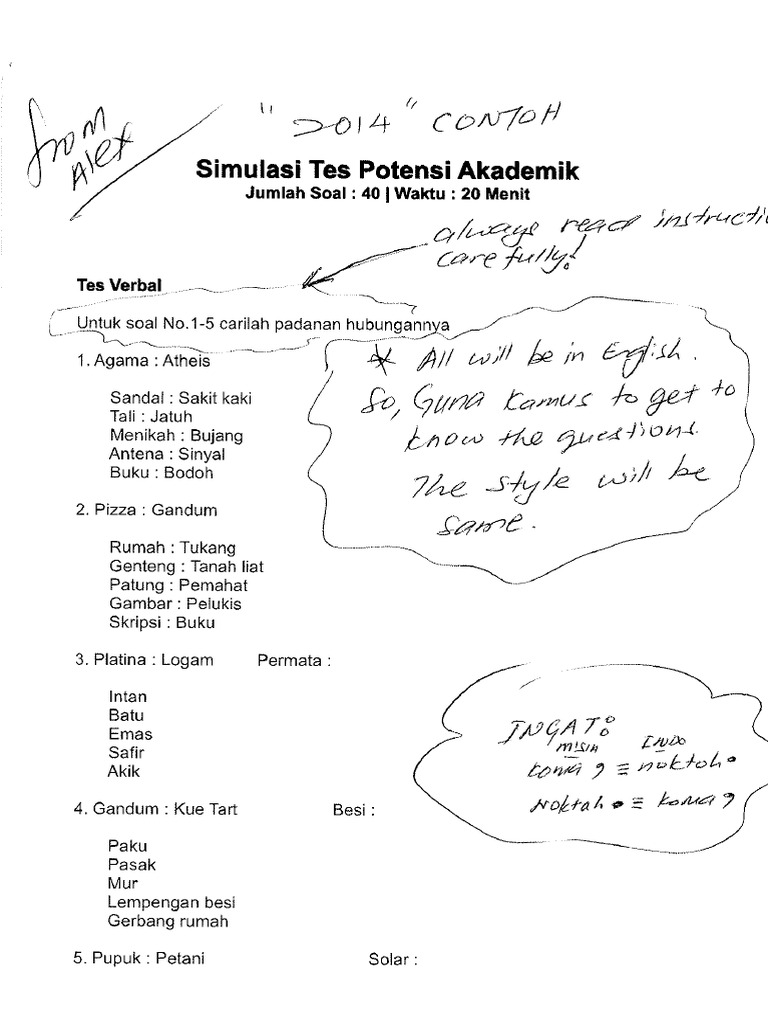 from
Alex
"2014" CONTOH
Simulasi Tes Potensi Akademik
Jumlah Soal : 40 | Waktu : 20 Menit
always read instructi
carefully!
Tes Verbal
Untuk soal No.1-5 carilah padanan hubungannya
1. Agama : Atheis
Sandal : Sakit kaki
Tali : Jatuh
Menikah : Bujang
Antena : Sinyal
Buku : Bodoh
* All will be in English.
So, Guna kamus to get to
know the questions.
The style will be
same.
2. Pizza : Gandum
Rumah : Tukang
Genteng : Tanah liat
Patung : Pemahat
Gambar : Pelukis
Skripsi : Buku
3. Platina : Logam Permata :
Intan
Batu
Emas
Safir
Akik
INGAT:
misin INDO
koma , ≡ noktah .
Noktah . ≡ koma ,
4. Gandum : Kue Tart Besi :
Paku
Pasak
Mur
Lempengan besi
Gerbang rumah
5. Pupuk : Petani Solar :